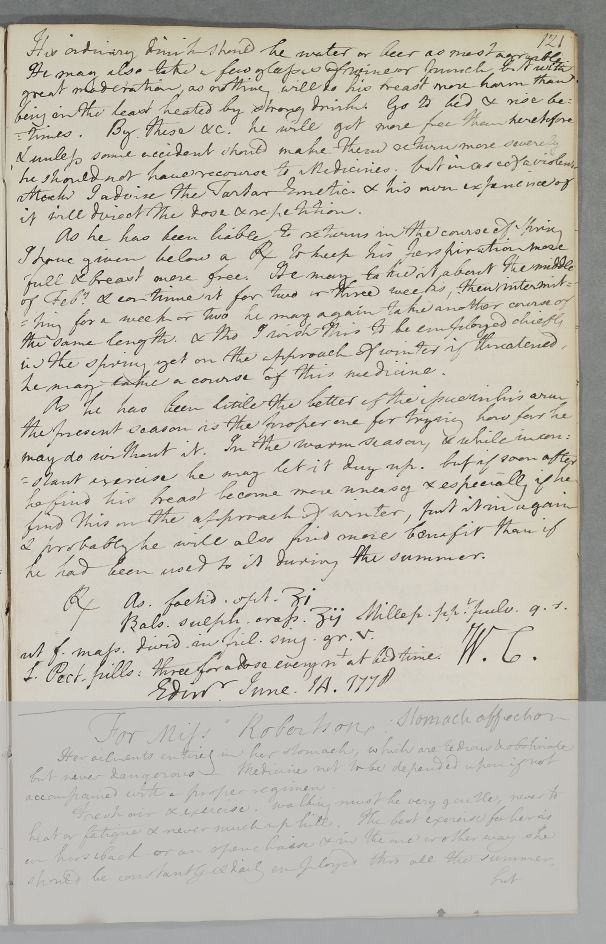 121
His ordinary drink should be water or beer as most agreeable.
He may also take a few glasses of wine or punch, but with
great moderation, as nothing will do his breast more harm than
being in the least heated by strong drink. Go to bed & rise be-
-times. By these &c. he will get more free than heretofore
& unless some accident should make them return more severely
he should not have recourse to Medicines. but in case of a violent
attack I advise the Tartar Emetic & his own experience of
it will direct the dose & repetition.
As he has been liable to returns in the course of Spring
I have given below a ℞ to keep his perspiration more
full & breast more free. He may take it about the middle
of Feby. & continue it for two or three weeks, then intermit-
-ting for a week or two he may again take another course of
the same length. & tho' I wish this to be employed chiefly
in the spring yet on the approach of winter if threatened,
he may take a course of this medicine.
As he has been little the better of the issue in his arm
the present season is the proper one for trying how far he
may do without it. In the warm season, & while in con-
-stant exercise he may let it dry up. but if soon after
he find his breast become more uneasy & especially if he
find this on the approach of winter, put it in again
& probably he will also find more benefit than if
he had been used to it during the summer.
℞ As. foetid. opt. ʒj
Bals. sulph. crass. ʒij Millep. ppt. pulv. q. s.
ut f. mass. divid. in pil. sing. gr. v.
S. Pect. pills. three for a dose every nt. at bed time. W. C.
Edinr. June. 14. 1778
For Miss Robertson, Stomach affection
Her ailments entirely in her stomach, which are tedious & obstinate
but never dangerous. Medicines not to be depended upon if not
accompanied with a proper regimen.
Fresh air & exercise. Walking must be very gentle, never to
heat or fatigue & never much up hill. The best exercise for her is
on horseback or an open chaise & in the one or other way she
should be constantly & daily employed thro all the summer,
but